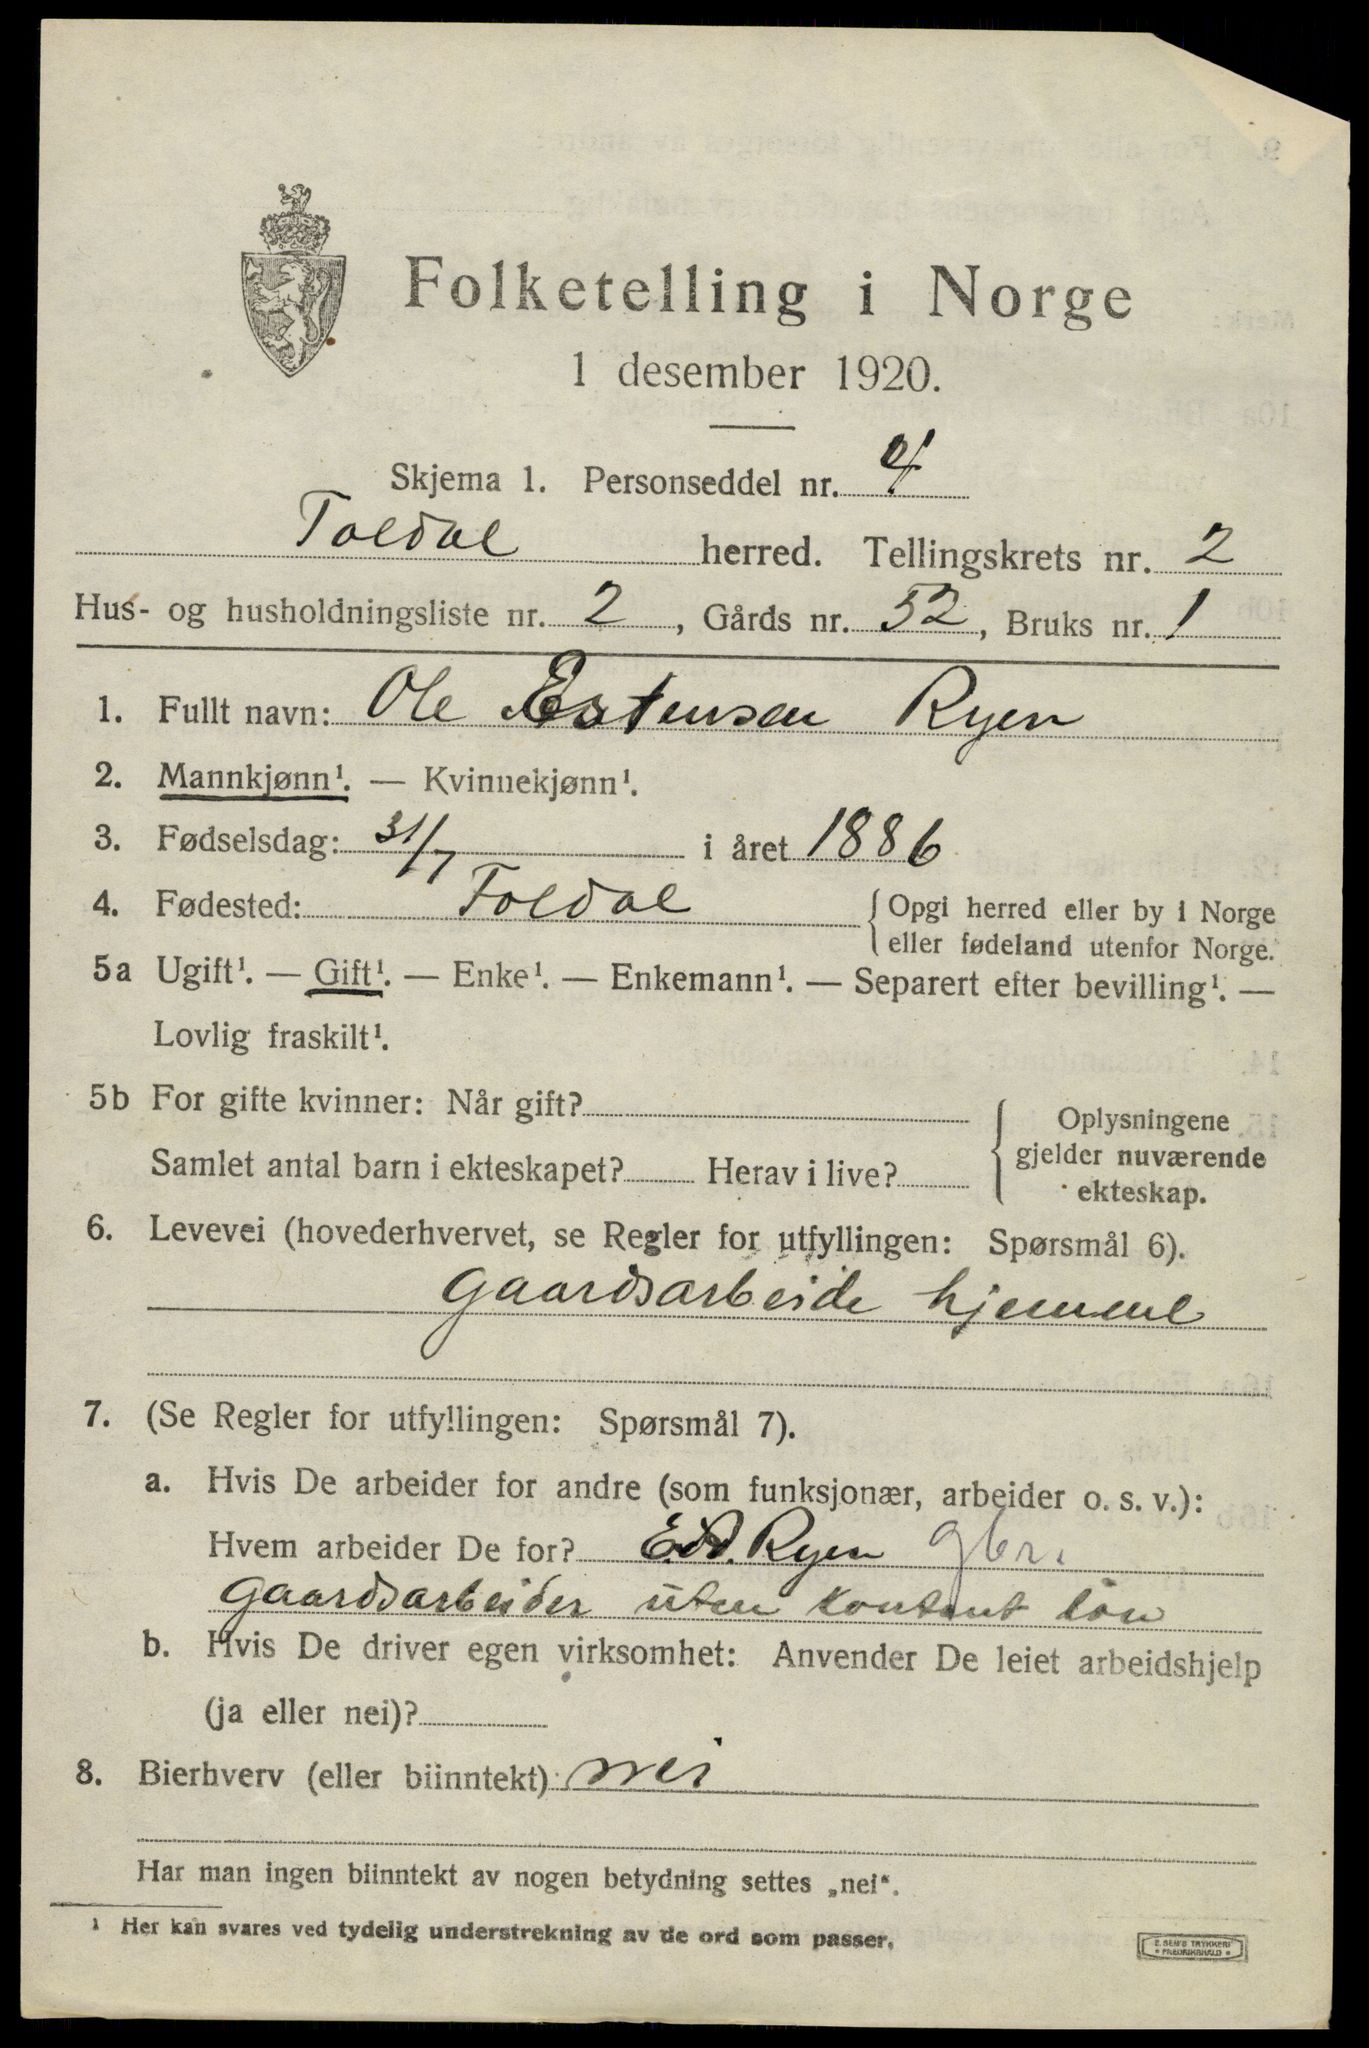 Folketelling i Norge
1 desember 1920.
Skjema 1. Personseddel nr. 4
Foldal herred. Tellingskrets nr. 2
Hus- og husholdningsliste nr. 2, Gårds nr. 52, Bruks nr. 1
1. Fullt navn: Ole Estensen Ryen
2. Mannkjønn¹. — Kvinnekjønn¹.
3. Fødselsdag: 31/7 i året 1886
4. Fødested: Foldal { Opgi herred eller by i Norge
eller fødeland utenfor Norge.
5a Ugift¹. — Gift¹. — Enke¹. — Enkemann¹. — Separert efter bevilling¹. —
Lovlig fraskilt¹.
5b For gifte kvinner: Når gift?
Samlet antal barn i ekteskapet? Herav i live?
{ Oplysningene
gjelder nuværende
ekteskap.
6. Levevei (hovederhvervet, se Regler for utfyllingen: Spørsmål 6).
Gaardsarbeide hjemme
7. (Se Regler for utfyllingen: Spørsmål 7).
a. Hvis De arbeider for andre (som funksjonær, arbeider o. s. v.):
Hvem arbeider De for? Ryen gbr.
Gaardsarbeider uten kontant løn
b. Hvis De driver egen virksomhet: Anvender De leiet arbeidshjelp
(ja eller nei)?
8. Bierhverv (eller biinntekt) nei
Har man ingen biinntekt av nogen betydning settes „nei“.
¹ Her kan svares ved tydelig understrekning av de ord som passer.
E. SEM'S TRYKKERI
FREDRIKSHALD